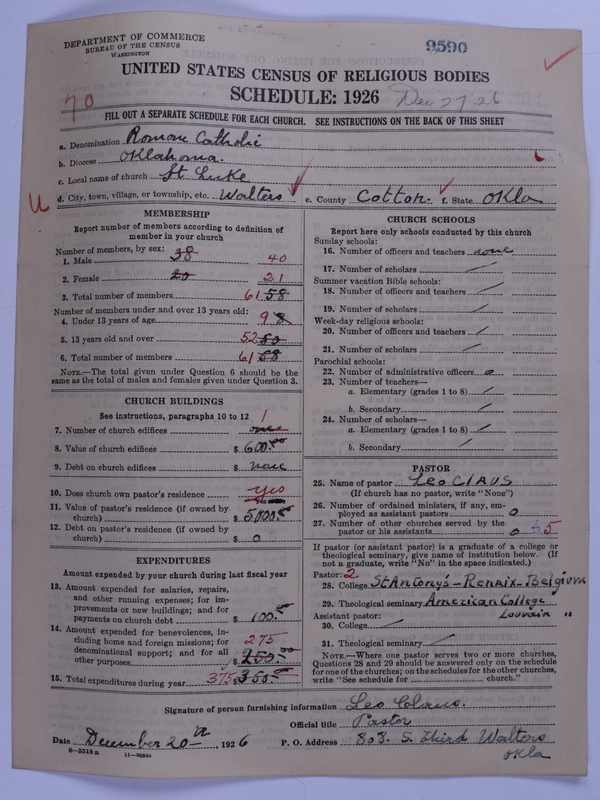 DEPARTMENT OF COMMERCE
BUREAU OF THE CENSUS
WASHINGTON
9590
UNITED STATES CENSUS OF RELIGIOUS BODIES
SCHEDULE: 1926
Dec 27 26
70
FILL OUT A SEPARATE SCHEDULE FOR EACH CHURCH. SEE INSTRUCTIONS ON THE BACK OF THIS SHEET
a. Denomination Roman Catholic
b. Diocese Oklahoma.
c. Local name of church St Luke
d. City, town, village, or township, etc. Walters e. County Cotton. f. State Okla
MEMBERSHIP
Report number of members according to definition of
member in your church
Number of members, by sex:
1. Male 38 40
2. Female 20 21
3. Total number of members 61 58
Number of members under and over 13 years old:
4. Under 13 years of age 9 8
5. 13 years old and over 52 50
6. Total number of members 61 58
NOTE.—The total given under Question 6 should be
same as the total of males and females given under Question 3.
CHURCH BUILDINGS
See instructions, paragraphs 10 to 12
1
7. Number of church edifices one
8. Value of church edifices $ 600.00
9. Debt on church edifices $ none
10. Does church own pastor's residence yes
11. Value of pastor's residence (if owned by
church) $ 5000.00
12. Debt on pastor's residence (if owned by
church) $ 0
EXPENDITURES
Amount expended by your church during last fiscal year
13. Amount expended for salaries, repairs,
and other running expenses; for im-
provements or new buildings; and for
payments on church debt $ 100.00
14. Amount expended for benevolences, in-
cluding home and foreign missions; for
denominational support; and for all
other purposes 275 $ 250.00
15. Total expenditures during year 375 $ 350.00
CHURCH SCHOOLS
Report here only schools conducted by this church
Sunday schools:
16. Number of officers and teachers none
17. Number of scholars /
Summer vacation Bible schools:
18. Number of officers and teachers /
19. Number of scholars /
Week-day religious schools:
20. Number of officers and teachers /
21. Number of scholars /
Parochial schools:
22. Number of administrative officers 0
23. Number of teachers—
a. Elementary (grades 1 to 8) /
b. Secondary /
24. Number of scholars—
a. Elementary (grades 1 to 8) /
b. Secondary /
PASTOR
25. Name of pastor Leo Claus
(If church has no pastor, write "None")
26. Number of ordained ministers, if any, em-
ployed as assistant pastors 0
27. Number of other churches served by the
pastor or his assistants 0 5
If pastor (or assistant pastor) is a graduate of a college or
theological seminary, give name of institution below. (If
not a graduate, write "No" in the space indicated.)
Pastor: 2
28. College St Antony's - Renaix - Belgium
29. Theological seminary American College
Assistant pastor: Louvain "
30. College /
31. Theological seminary /
NOTE.—Where one pastor serves two or more churches,
Questions 28 and 29 should be answered only on the schedule
for one of the churches; on the schedules for the other churches,
write "See schedule for church."
Signature of person furnishing information Leo Claus.
Official title Pastor
Date December 20th, 1926 P. O. Address 808. S. Third Walters
Okla
8-5518a 11-9054